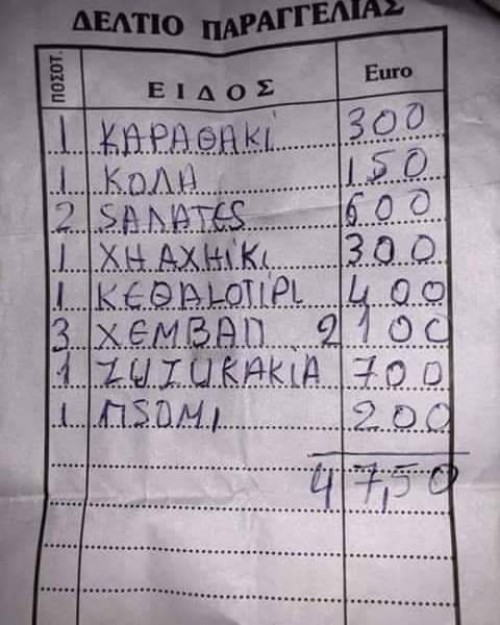 ΔΕΛΤΙΟ ΠΑΡΑΓΓΕΛΙΑΣ
ΠΟΣΟΤ. ΕΙΔΟΣ Euro
1 ΚΑΡΑΘΑΚΙ 300
1 ΚΟΛΑ 150
2 SAΛATES 600
1 ΧΗΑΧΗΙΚΙ 300
1 ΚΕΘΑLΟΤΙΡΙ 400
3 ΧΕΜΒΑΠ 2100
1 ΖUΖUΚΑΚΙΑ 700
1 ΠSΟΜΙ 200
47,50